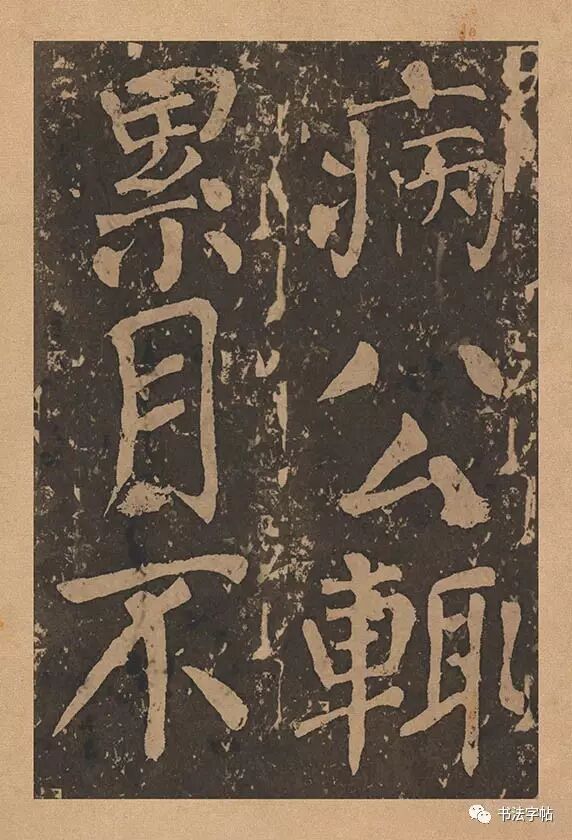 病公輙
累目不
书法字帖